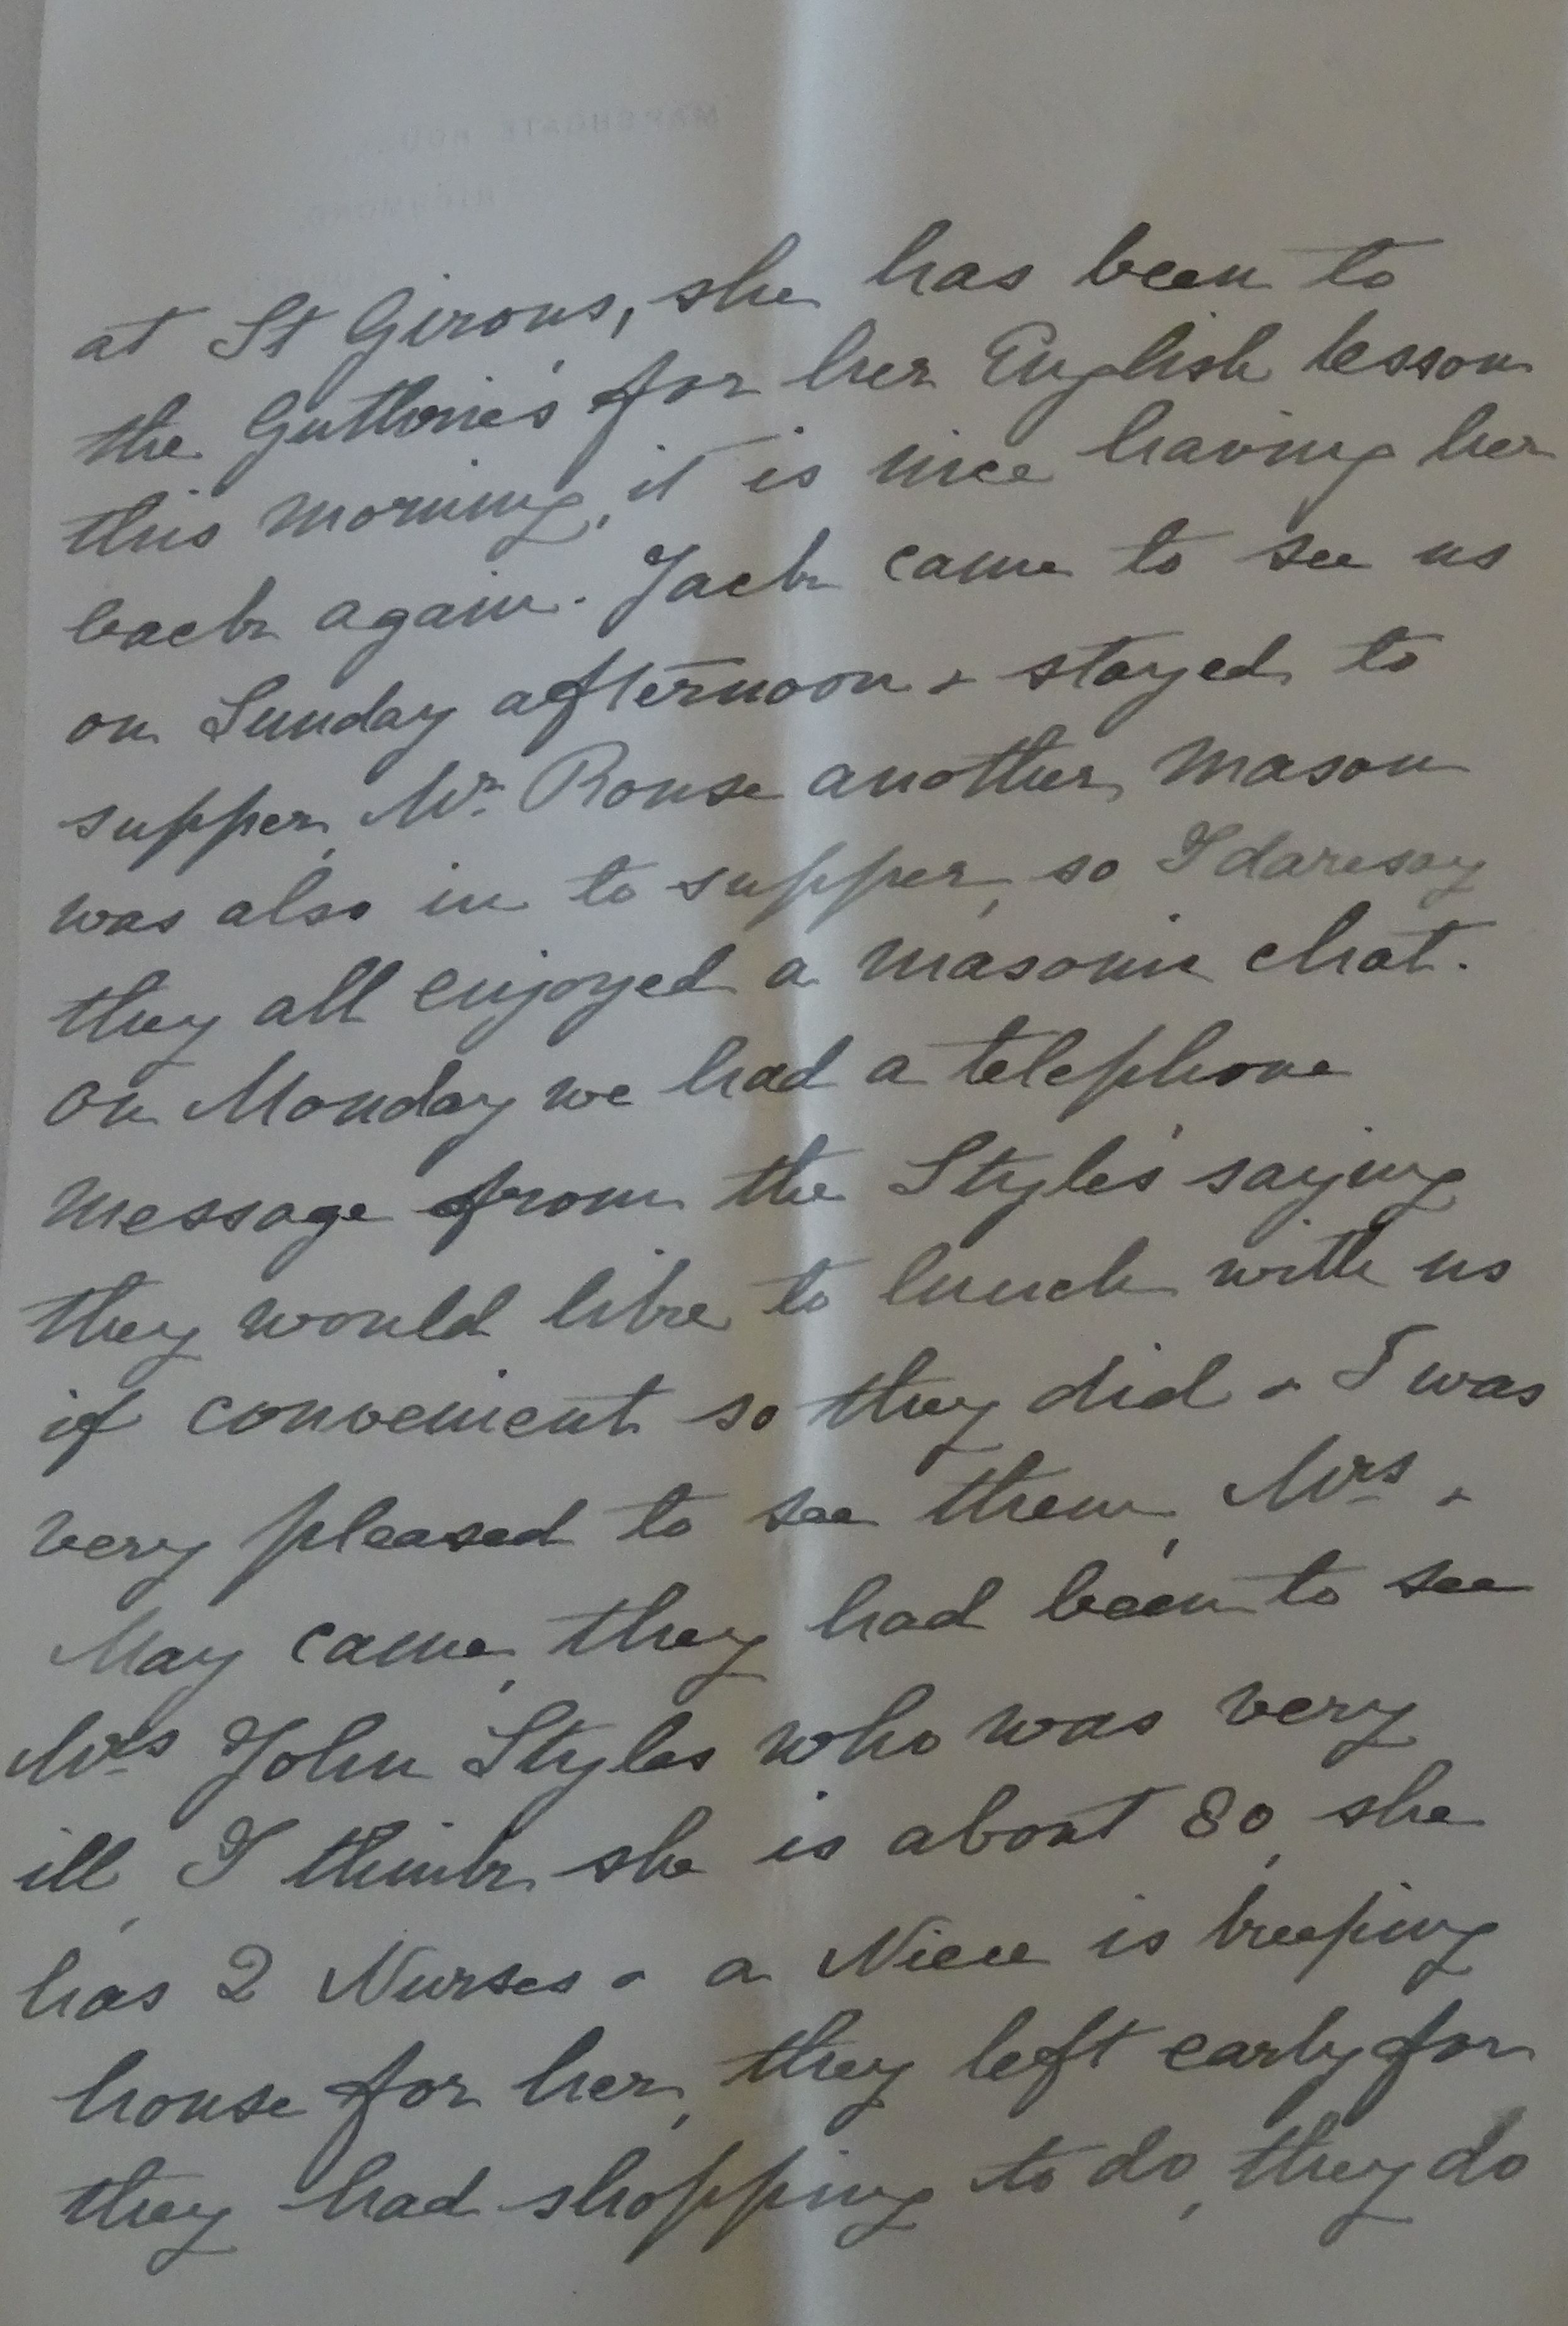 at St Girons, she has been to
the Guthrie's for her English lesson
this morning, it is nice having her
back again. Jack came to see us
on Sunday afternoon & stayed to
supper, Mr. Rouse another Mason
was also in to supper, so I daresay
they all enjoyed a masonic chat.
On Monday we had a telephone
message from the Styles' saying
they would like to lunch with us
if convenient so they did & I was
very pleased to see them, Mrs &
May came, they had been to see
Mrs John Styles who was very
ill, I think she is about 80, she
has 2 Nurses & a Niece is keeping
house for her, they left early for
they had shopping to do, they do